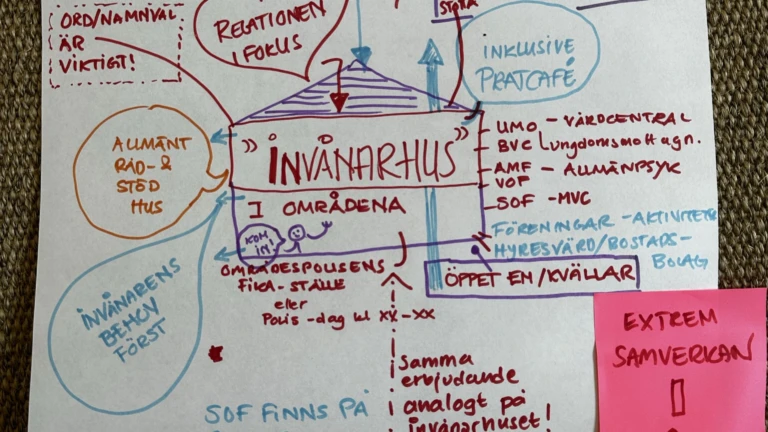 ORD/NAMNVAL
ÄR
VIKTIGT!
RELATIONEN
I FOKUS
STORA
INKLUSIVE
PRATCAFÉ
ALLMÄNT
RÅD- &
STÖD
HUS
”INVÅNARHUS”
I OMRÅDENA
KOM
IN!
UMO - VÅRDCENTRAL
BVC Ungdomsmottagn.
AMF - ALLMÄNPSYK
VOF
SOF - MVC
FÖRENINGAR - AKTIVITETER
HYRESVÄRD/BOSTADS-
BOLAG
ÖPPET EM/KVÄLLAR
OMRÅDESPOLISENS
FIKA-STÄLLE
eller
Polis-dag kl xx-xx
INVÅNARENS
BEHOV
FÖRST
Samma
erbjudande
analogt på
invånarhuset!
SOF FINNS PÅ
EXTREM
SAMVERKAN
!